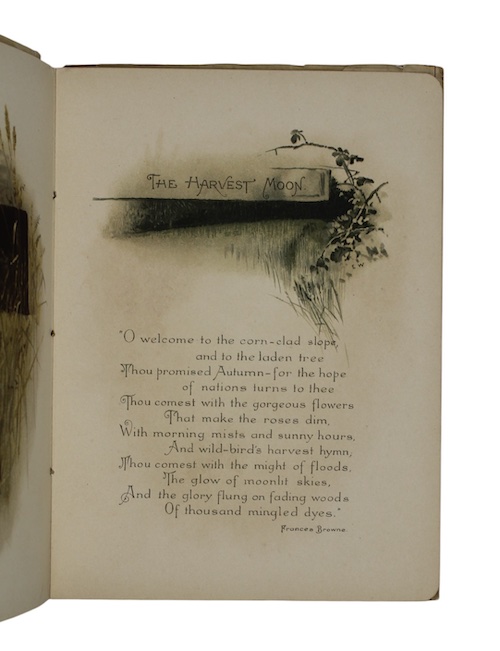 THE HARVEST MOON.
"O welcome to the corn-clad slope,
and to the laden tree
Thou promised Autumn—for the hope
of nations turns to thee
Thou comest with the gorgeous flowers
That make the roses dim,
With morning mists and sunny hours,
And wild-bird's harvest hymn,
Thou comest with the might of floods,
The glow of moonlit skies,
And the glory flung on fading woods
Of thousand mingled dyes."
Frances Browne